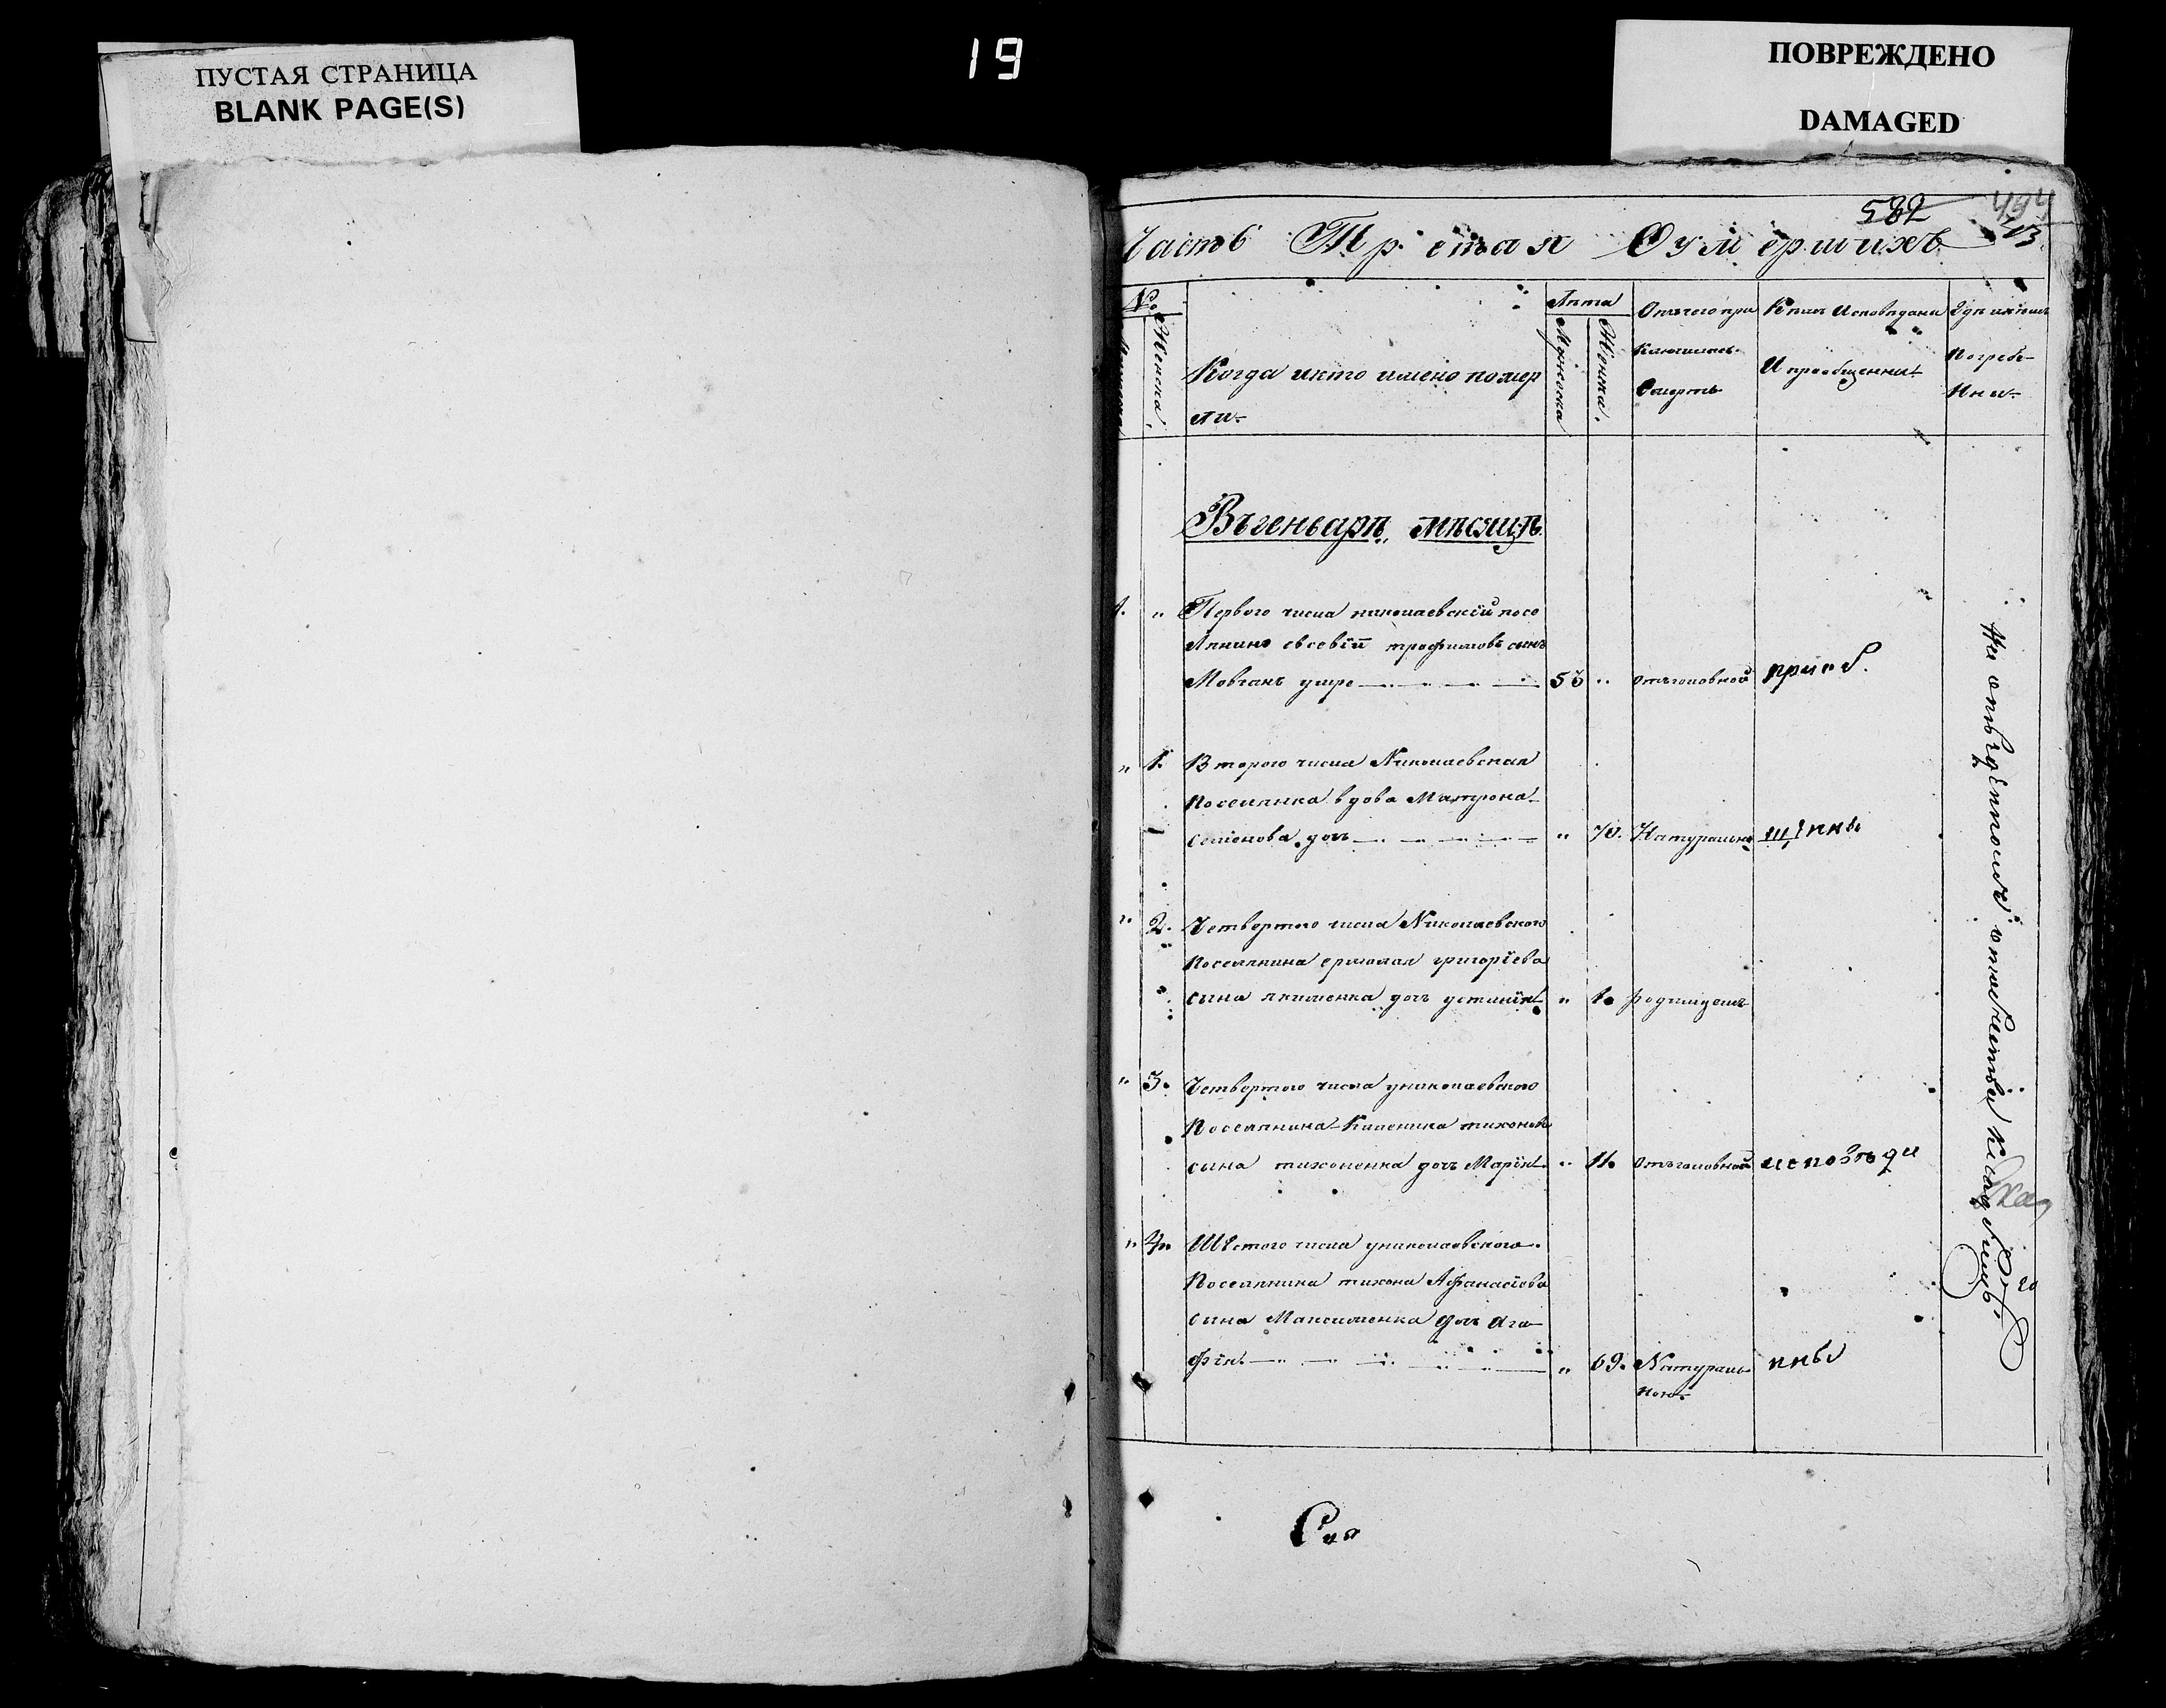 ПУСТАЯ СТРАНИЦА
BLANK PAGE(S)
19
ПОВРЕЖДЕНО
DAMAGED
582
494
Часть Третая Оумершихъ
№
Женска.
Когда икто имено помер
ли
Лѣта
Мужеска
Женска.
Отъчего при
ключилась
Смерть
Кѣмъ Исповѣдани
И приобщенны
Гдѣ икѣмъ
Погребе-
Ины
Въгеньварѣ мѣсяцѣ
1. " Перваго числа николаевскій посе
лянинъ евсевій трофимовъ сынъ
Мовчанъ умре 53 " отъголовной приоб.
" 1. Второго числа Николаевская
поселянка вдова Матрона
семенова дочь " 70. Натурально
" 2. Четвертого числа Николаевского
поселянина ермолая григоріева
сына якименка дочь устинія " 1. родимцемъ
" 3. Четвертого числа униколаевского
Поселянина Каленика тихонова
сына тихоненка дочь Марія " 11. отъголовной исповѣди
" 4. Шѣстого числа униколаевского
Поселянина тихона Афанасіева
сына Максименка дочь Ага
фія " 69. Натураль
ною
На опѣ приходскомъ кладбищѣ
Свя